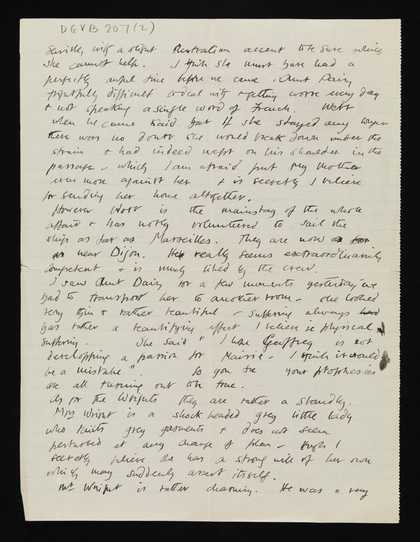 DGVB 207(2)
with a slight Australian accent to be sure which
she cannot help. I think she must have had a
perfectly awful time before we came. Aunt Daisy
frightfully difficult & getting worse every day
& not speaking a single word of French.
when he came said that if she stayed any longer
there was no doubt she would break down under the
strain & had indeed wept on his shoulder in the
passage - which I am afraid put my Mother
even more against her & is secretly I believe
for sending her home altogether.
However is the mainstay of the whole
affair & has nobly volunteered to sail the
ship as far as Marseilles. They are now
near Dijon. He really seems extraordinarily
competent & is much liked by the crew.
I saw Aunt Daisy for a few moments yesterday we
had to transport her to another room - she looked
very thin & rather beautiful - suffering always
has rather a beautifying effect I believe ie physical
suffering. She said "I hope Geoffrey is not
developping a passion for - I think it would
be a mistake". So you see your prophecies
are all turning out to be true.
As for the they are rather a standby.
Miss is a shock headed grey little lady
who knits grey garments & does not seem
perturbed at any change of plan - though I
secretly believe she has a strong will of her own
which may suddenly assert itself.
Mr is rather charming. He was a very